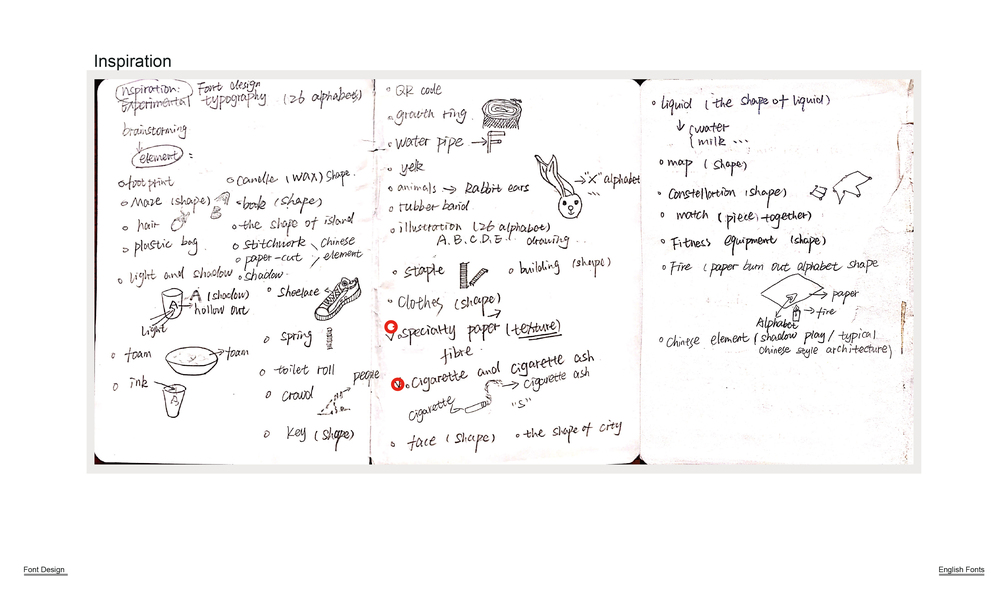 Inspiration
Inspiration: Font design
Experimental typography (26 alphabets)
brainstorming
element:
footprint
Maze (shape)
hair
plastic bag
light and shadow
A (shadow)
hollow out
A
light
foam
foam
ink
B
candle (wax) shape
book (shape)
B
the shape of island
stitchwork
paper-cut
chinese
element
shadow
shoelace
spring
toilet roll
crowd
people
key (shape)
QR code
growth ring
water pipe → F
yelk
animals → Rabbit ears
→ "X" alphabet
rubber band
illustration (26 alphabet)
A.B.C.D.E... drawing...
staple
building (shape)
Clothes (shape)
specialty paper (texture)
fibre
Cigarette and cigarette ash
cigarette ash
cigarette
"S"
face (shape)
the shape of city
liquid (the shape of liquid)
water
milk ...
map (shape)
Constellation (shape)
match (piece together)
Fitness equipment (shape)
Fire (paper burn out alphabet shape
paper
fire
Alphabet
Chinese element (shadow play / typical
chinese style architecture)
Font Design
English Fonts